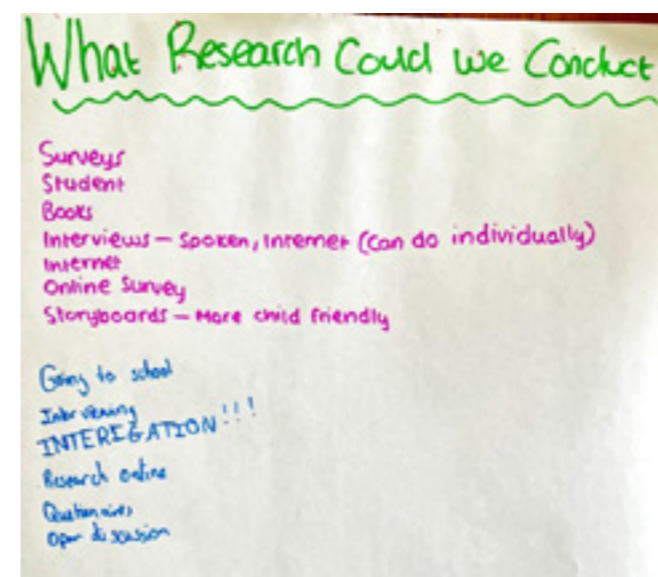 What Research Could we Conduct
Surveys
Student
Books
Interviews – Spoken, Internet (Can do individually)
Internet
Online Survey
Storyboards – More child friendly
Going to school
Interviewing
INTERIGATION!!!
Research online
Questionaires
Open discussion